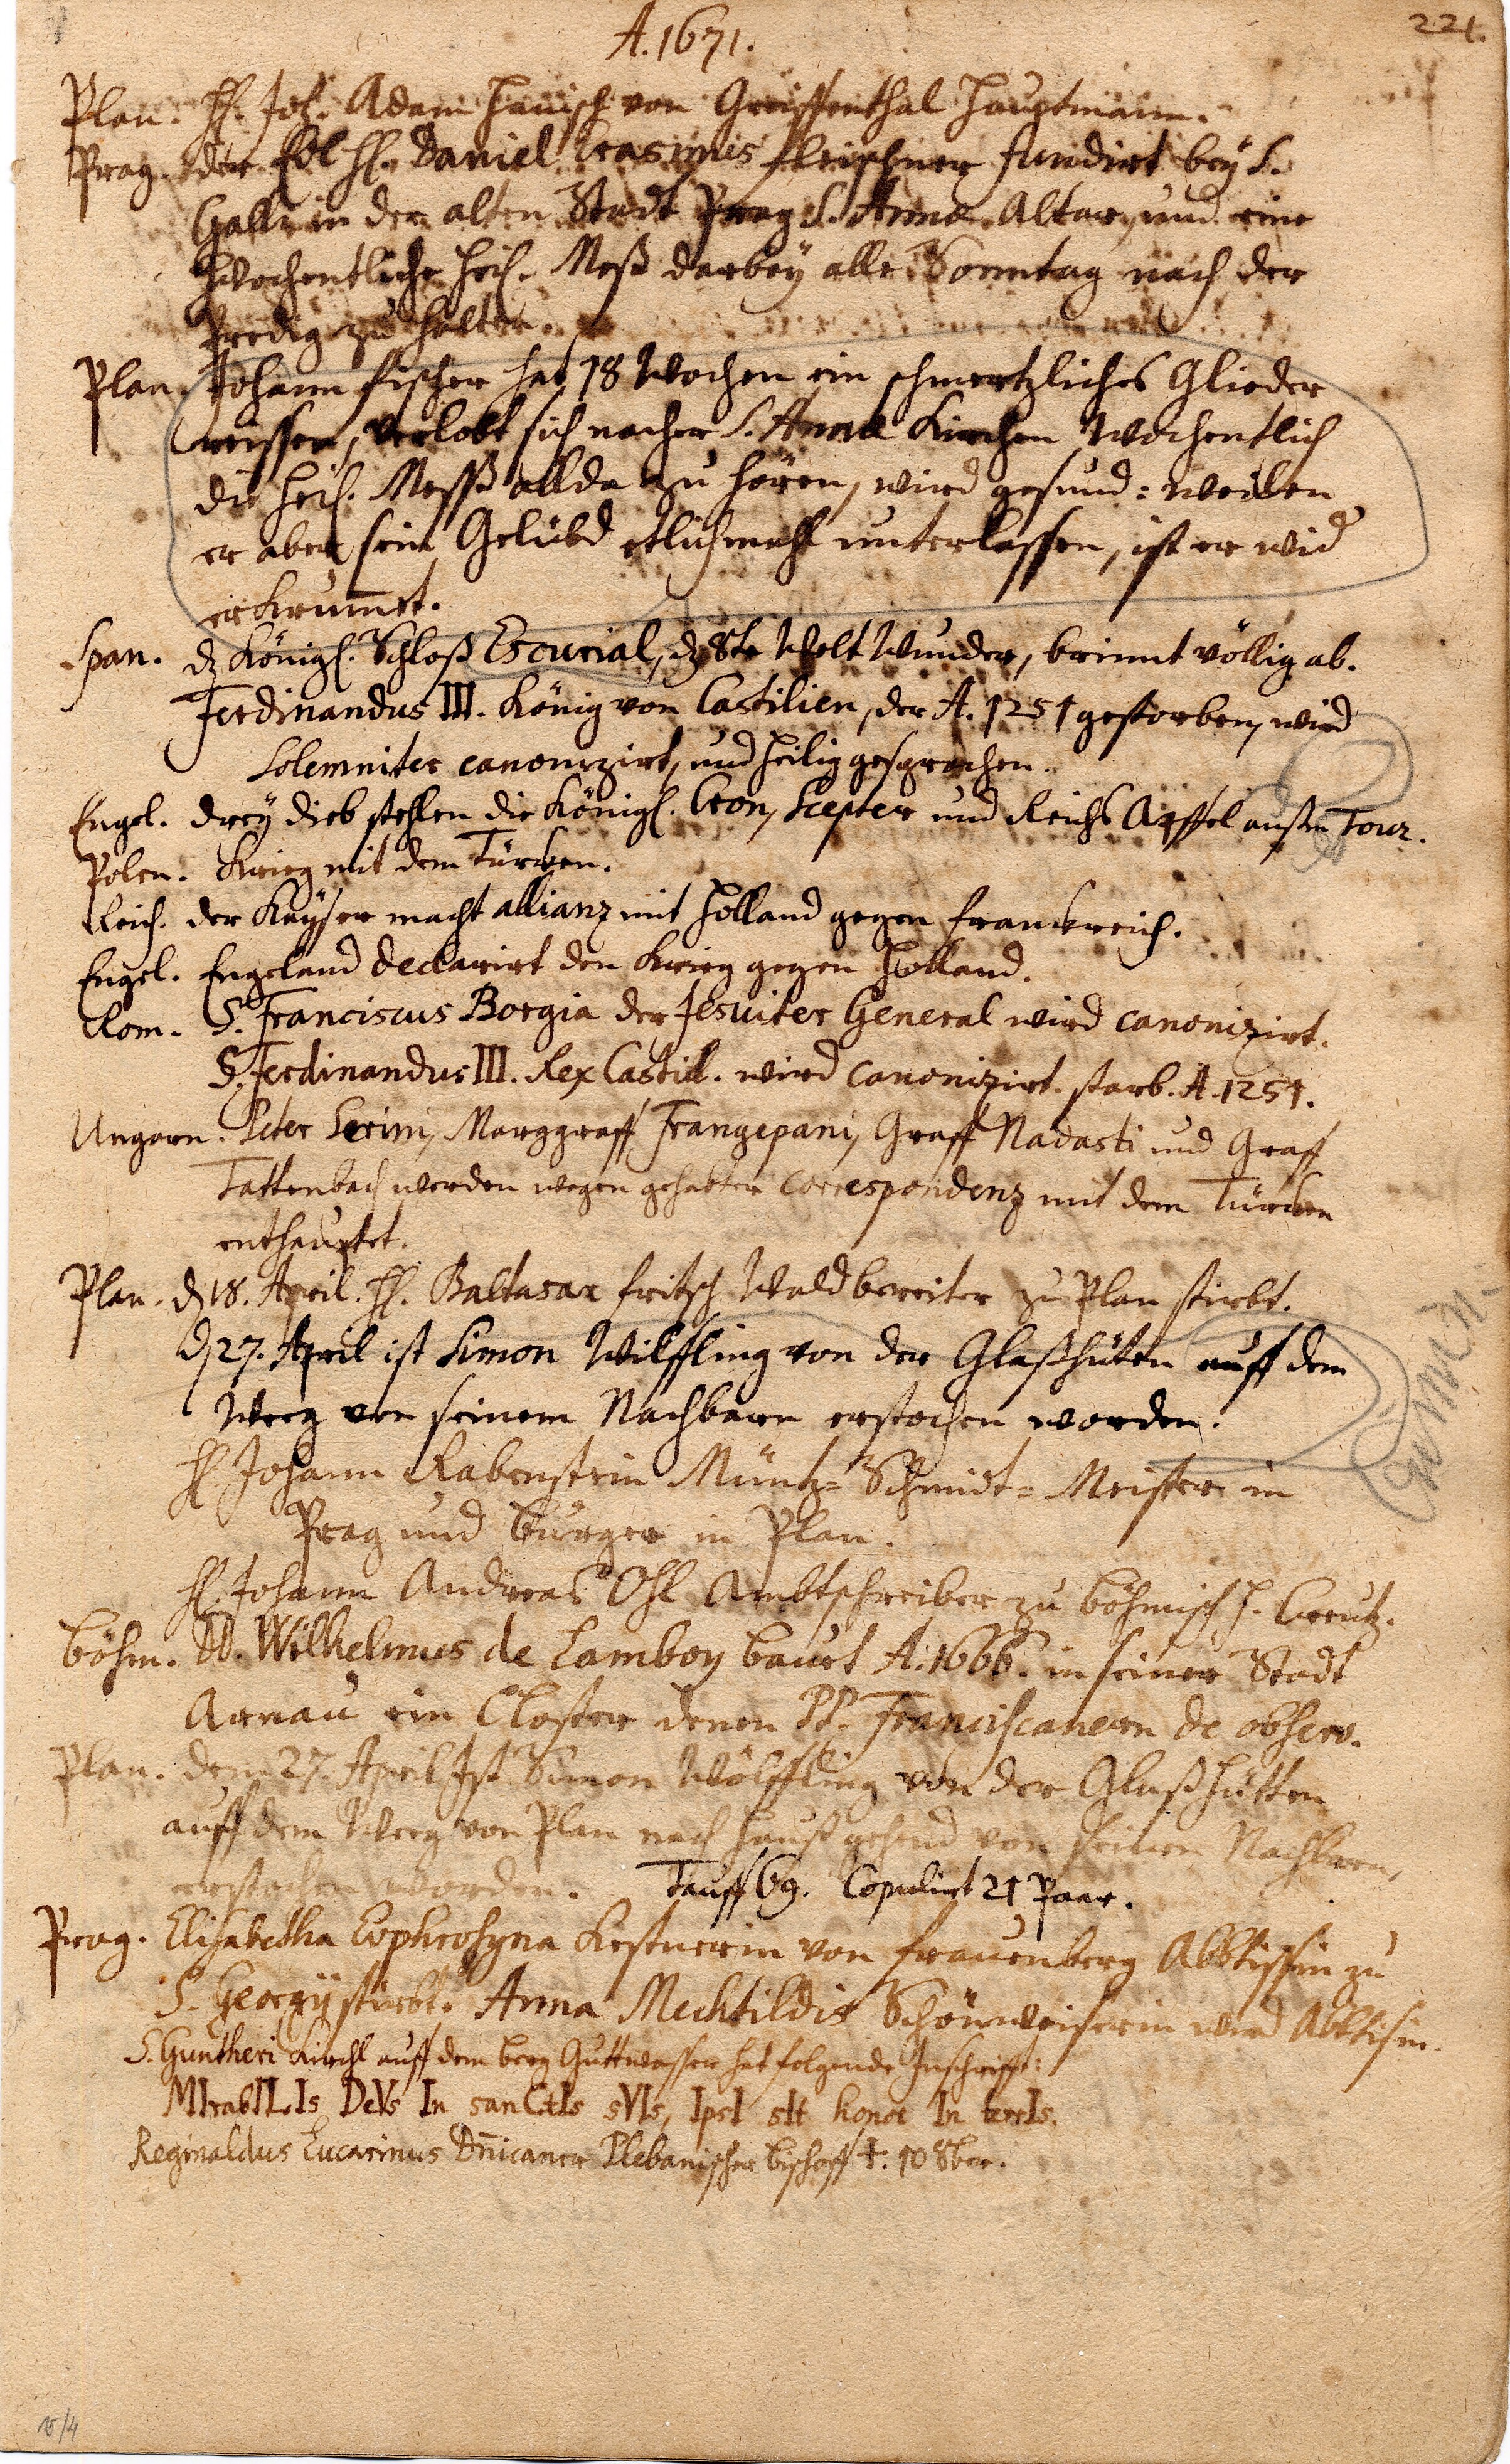 221.
A. 1671.
Plan. H. Joh. Adam Hanisch von Greiffenthal Hauptmann.
Prag. der Edl H. Daniel Erasmus fleischner fundirt bey S.
Galli in der alten Stadt Prag S. Annæ Altar, und eine
Wochentliche heil. Meß darbey alle Sonntag nach der
Predig zu halten.
Plan. Johann fischer hat 18 Wochen ein schmertzliches Glieder
reissen, verlobt sich nacher S. Annæ Kirchen Wochentlich
die heil. Messß allda zu hören, wird gesund: weilen
er aber sein Gelübd etlichmahl unterlassen, ist er wid
erkrummet.
Span. dz Königl. Schloß Escurial, dz 8te Welt Wunder, brinnt völlig ab.
Ferdinandus III. König von Castilien, der A. 1251 gestorben, wird
Solemniter canonizirt, und heilig gesprochen.
Engel. drey dieb stehlen die Königl. Cron, Scepter und Reichs Apffel außm Tour.
Polen. Krieg mit dem Türcken.
Reich. der Kayser macht allianz mit Holland gegen franckreich.
Engel. Engeland declarirt den Krieg gegen Holland.
Rom. S. Franciscus Borgia der Jesuiter General wird canonizirt.
S. Ferdinandus III. Rex Castill. wird canonizirt. starb. A. 1251.
Ungarn. Peter Serini, Marggraff Frangepani, Graff Nadasti und Graff
Tattenbach werden wegen gehabter correspondenz mit dem Türcken
enthauptet.
Plan. d 18. April. H. Baltasar fritsch Waldbereiter zu Plan stirbt.
d 27. April ist Simon Wilffling von der Glaßhüten auff dem
Weeg von seinem Nachbarn erstochen worden.
H. Johann Rabenstein Müntz-Schmidt-Meister in
Prag und burger in Plan.
H. Johann Andreas Ohl Ambtschreiber zu böhmisch h. Creutz.
böhm. Wilhelmus de Lamboy bauet A. 1666. in seiner Stadt
Arnau ein Closter denen PP. Franciscanern de observ.
Plan. dem 27. April Ist Simon Wölffling von der Glaßhütten
auff dem Weeg von Plan nach hauß gehend von seinen Nachbarn,
erstochen worden. Tauff 69. Copulirt 21 Paar.
Prag. Elisabetha Euphrosyna Kestnerin von frauenberg Abbtissin zu
S. Georgij stirbt. Anna Mechtildis Schönweiserin wird Abbtisin.
S. Guntheri Kirchl auff dem berg Guttwasser hat folgende Inschrifft:
MIrabILIs DeVs In sanCtIs sVIs, IpsI sIt honor In terIs.
Reginaldus Lucarinus Dnicaner Plebanischer bischoff †. 10 8ber.
15/4